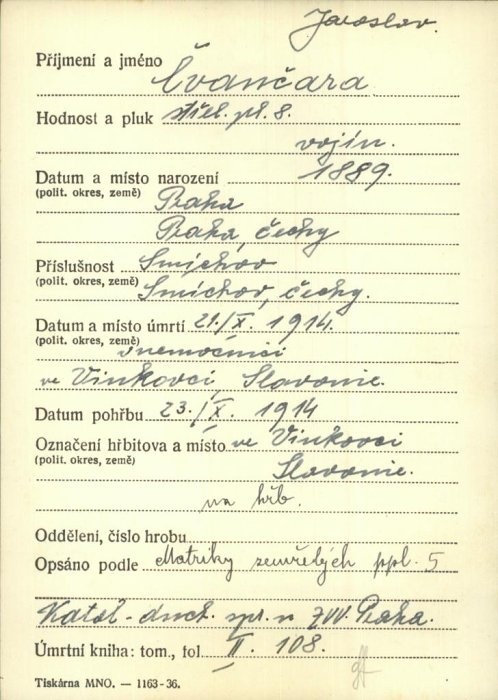 Jaroslav.
Příjmení a jméno
Čvančara
Hodnost a pluk střel. pl. 8.
vojín.
Datum a místo narození 1889.
(polit. okres, země) Praha
Praha, Čechy
Příslušnost Smíchov
(polit. okres, země) Smíchov, Čechy.
Datum a místo úmrtí 21./X. 1914.
(polit. okres, země) v nemocnici
ve Vinkovci, Slavonie.
Datum pohřbu 23./X. 1914
Označení hřbitova a místo ve Vinkovci
(polit. okres, země) Slavonie.
na hřb.
Oddělení, číslo hrobu
Opsáno podle Matriky zemřelých ppl. 5
Katol. duch. spr. n ZVV. Praha.
Úmrtní kniha: tom., fol. II. 108.
Tiskárna MNO. — 1163-36.